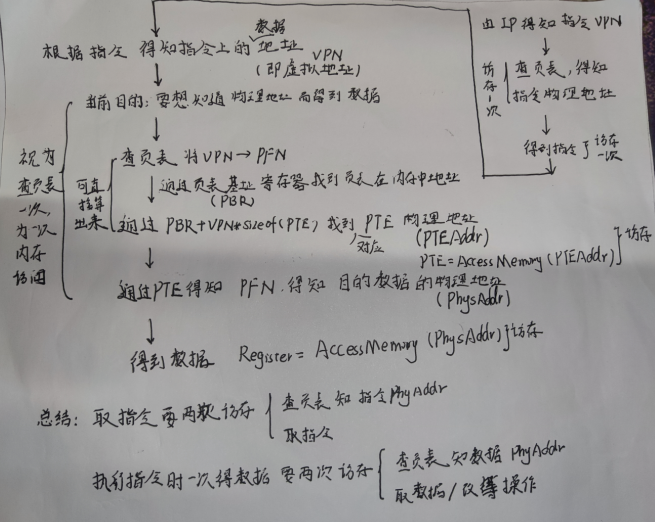 由IP得知指令VPN
访存一次
查页表,得知
指令物理地址
得到指令
访存一次
数据
根据指令 得知指令上的地址 VPN
(即虚拟地址)
当前目的: 要想知道物理地址而得到数据
视为查页表一次,为一次内存访问
可直接算出来
查页表 将VPN→PFN
通过页表基址寄存器找到页表在内存中地址
(PBR)
通过 PBR+VPN*sizeof(PTE) 找到 PTE 物理地址
对应
(PTEAddr)
PTE=AccessMemory(PTEAddr)
访存
通过PTE得知 PFN.得知 目的数据的物理地址
(PhysAddr)
得到数据 Register=AccessMemory(PhysAddr)
访存
总结: 取指令要两次访存
查页表知指令PhyAddr
取指令
执行指令时一次得数据 要两次访存
查页表知数据PhyAddr
取数据/ 操作